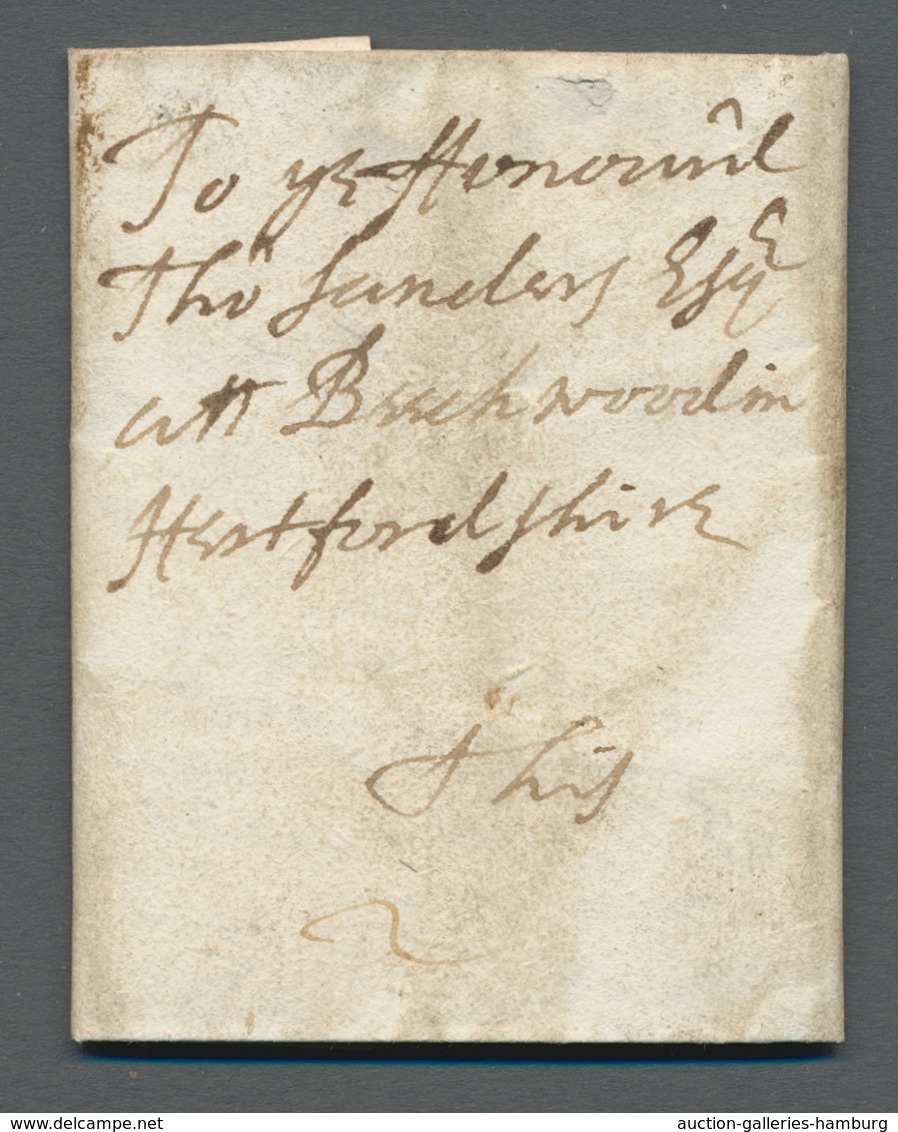 To ye Honour̃l
Tho Sanders Esqr
att Beechwood in
Hertfordshire
this
2
www.delcampe.net
auction-galleries-hamburg